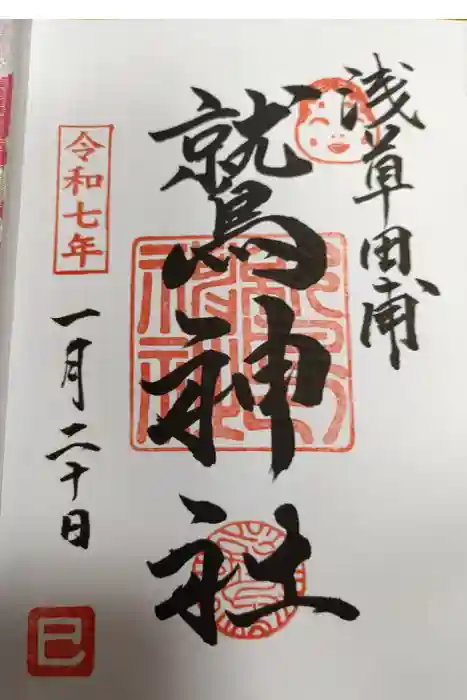 浅草田甫
鷲神社
令和七年
一月二十日
巳